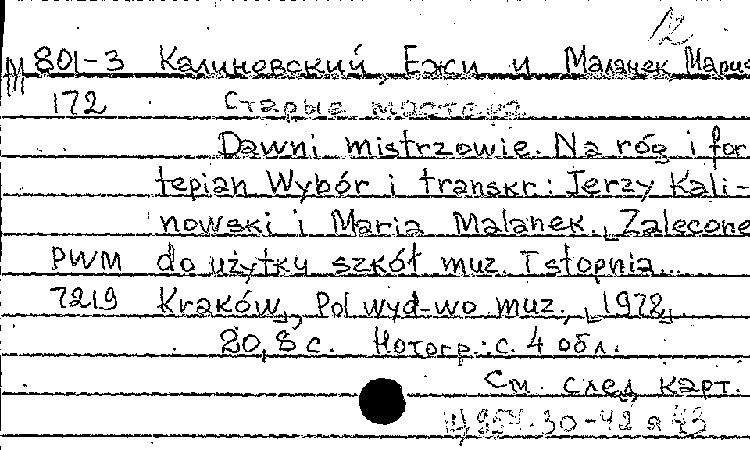 12
М 801-3 Калиновский, Ежи и Маланек, Мария
172 Старые мастера
Dawni mistrzowie. Na róg i for
tepian Wybór i transkr.: Jerzy Kali-
nowski i Maria Malanek. [Zalecone
PWM do użytku szkół muz. I stopnia...
7219 Kraków, Pol wyd-wo muz., [1972].
20, 8 с. Нотогр.: с. 4 обл.
См. след карт.
954.30-42 я 43